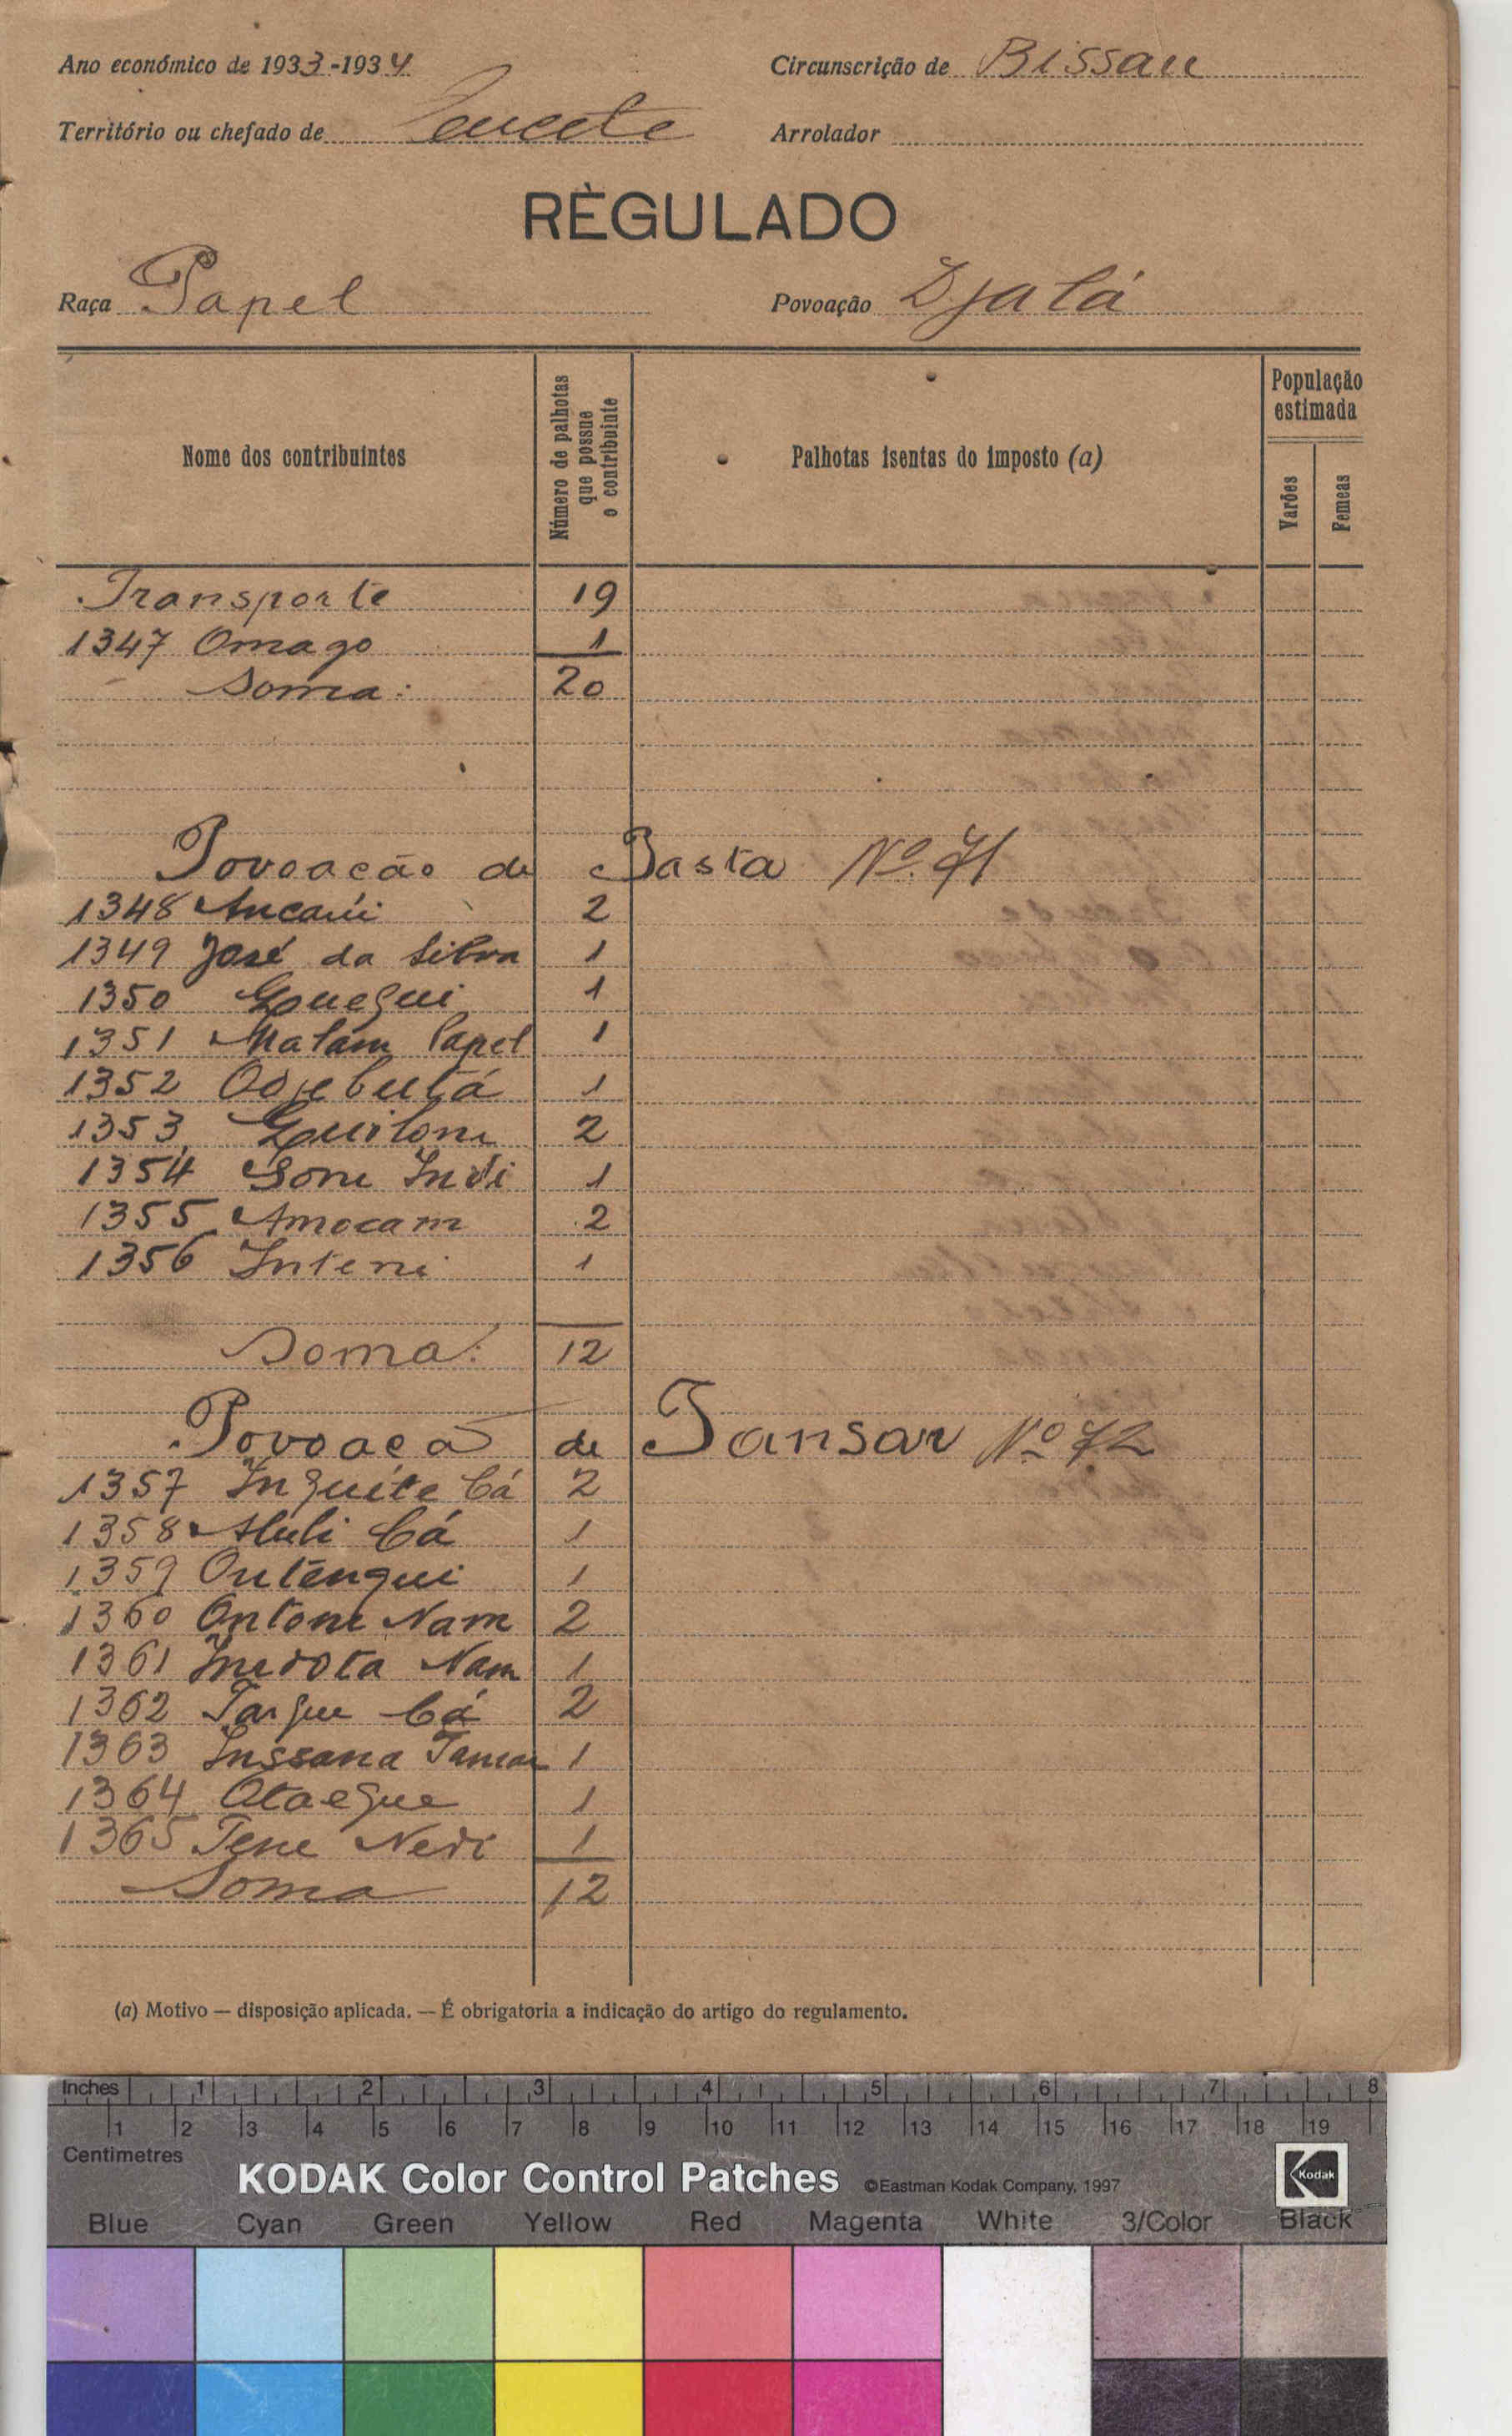 Ano económico de 1933-1934 Circunscrição de Bissau
Território ou chefado de Arrolador
RÈGULADO
Raça Papel Povoação Djalá
Nome dos contribuintes
Número de palhotas que possue o contribuinte
Palhotas isentas do imposto (a)
População estimada
Varões
Femeas
Transporte 19
1347 Omago 1
Soma: 20
Povoação de Basta Nº 71
1348 2
1349 José da Silva 1
1350 1
1351 Malam Papel 1
1352 Odjebutá 1
1353 2
1354 1
1355 Amocam 2
1356 Inteni 1
Soma: 12
Povoaçã de Tansar Nº 72
1357 Inguite Cá 2
1358 Cá 1
1359 Outengui 1
1360 Ontone Nam 2
1361 Nam 1
1362 Cá 2
1363 Inssana 1
1364 1
1365 Tene 1
Soma 12
(a) Motivo — disposição aplicada. — É obrigatoria a indicação do artigo do regulamento.
Inches 1 2 3 4 5 6 7 8
1 2 3 4 5 6 7 8 9 10 11 12 13 14 15 16 17 18 19
Centimetres
KODAK Color Control Patches ©Eastman Kodak Company, 1997 Kodak
Blue Cyan Green Yellow Red Magenta White 3/Color Black